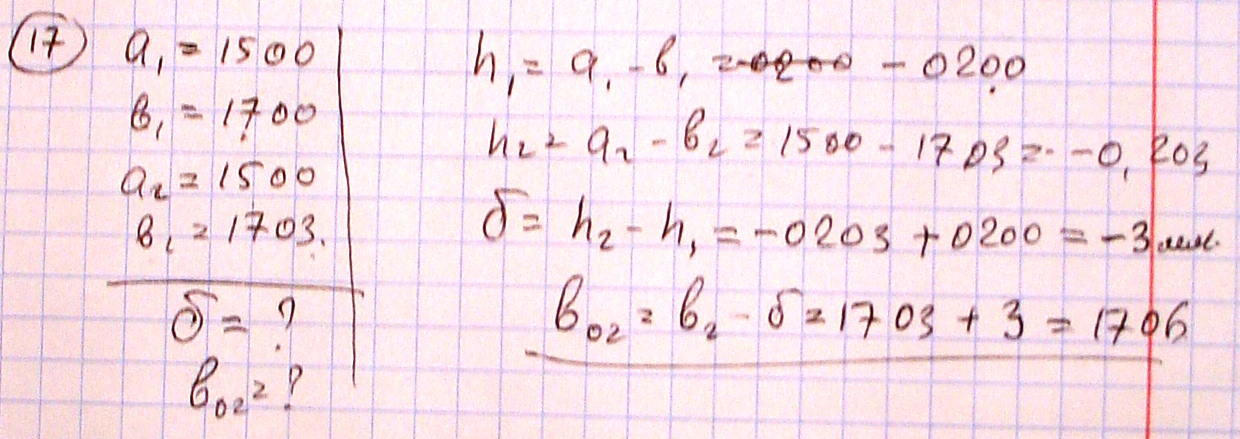 17
a₁ = 1500
в₁ = 1700
a₂ = 1500
в₂ = 1703.
δ = ?
в₀₂ = ?
h₁ = a₁ - в₁ = - 0200
h₂ = a₂ - в₂ = 1500 - 1703 = - -0,203
δ = h₂ - h₁ = -0203 + 0200 = -3 мм.
в₀₂ = в₂ - δ = 1703 + 3 = 1706